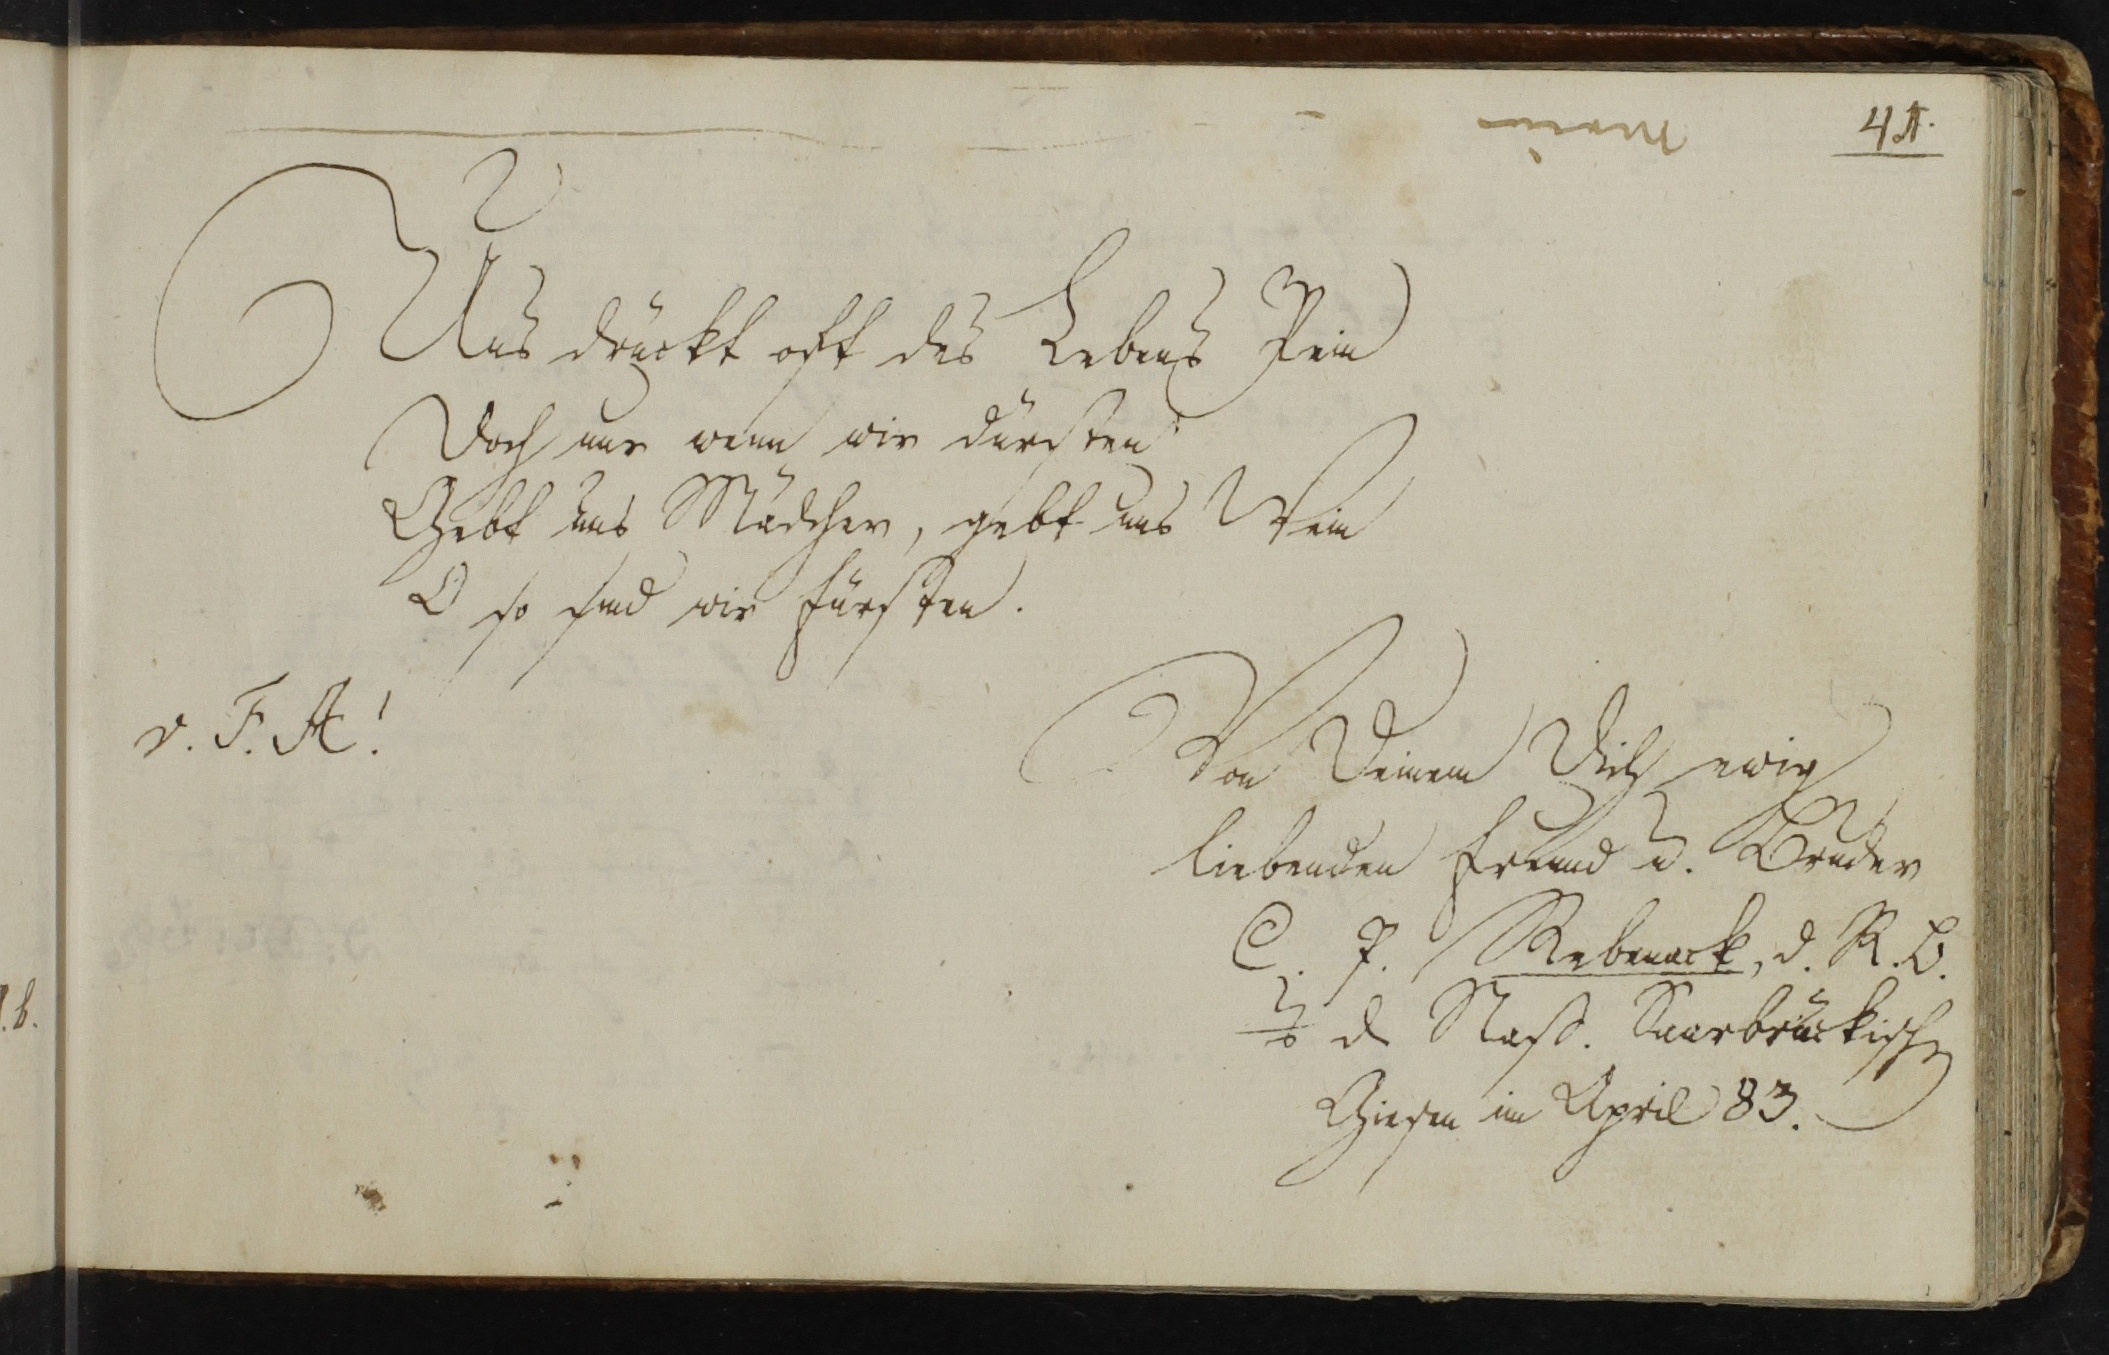 41.
Uns drückt oft des Lebens Pein
Doch nur wenn wir dürsten
Gebt uns Mädcher, gebt uns Wein
O so sind wir Fürsten.
v. F. A!
Von Deinem Dich ewig
liebenden Freund u. Bruder
C. P. Rebenack, d. R. B.
d Nass. Saarbrückische
Giesen im April 83.